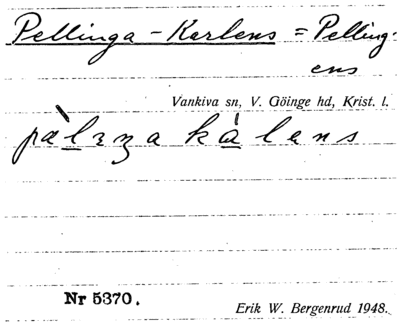 Pellinga-Karlens = Pelling-
ens
Vankiva sn, V. Göinge hd, Krist. l.
Nr 5370.
Erik W. Bergenrud 1948.